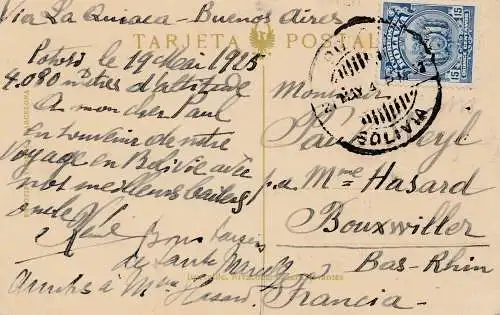 Via La Quiaca - Buenos Aires
TARJETA POSTAL
Potosi le 19 Mai 1925
4.080 mètres d'altitude
A mon cher Paul
En souvenir de notre
voyage en Bolivie avec
nos meilleurs baisers
oncle René
Bons baisers
de tante
Amitiés à Mme Hasard
Monsieur
Paul
p.a. Mme Hasard
Bouxwiller
Bas-Rhin
Francia
MAY
BOLIVIA
15
15